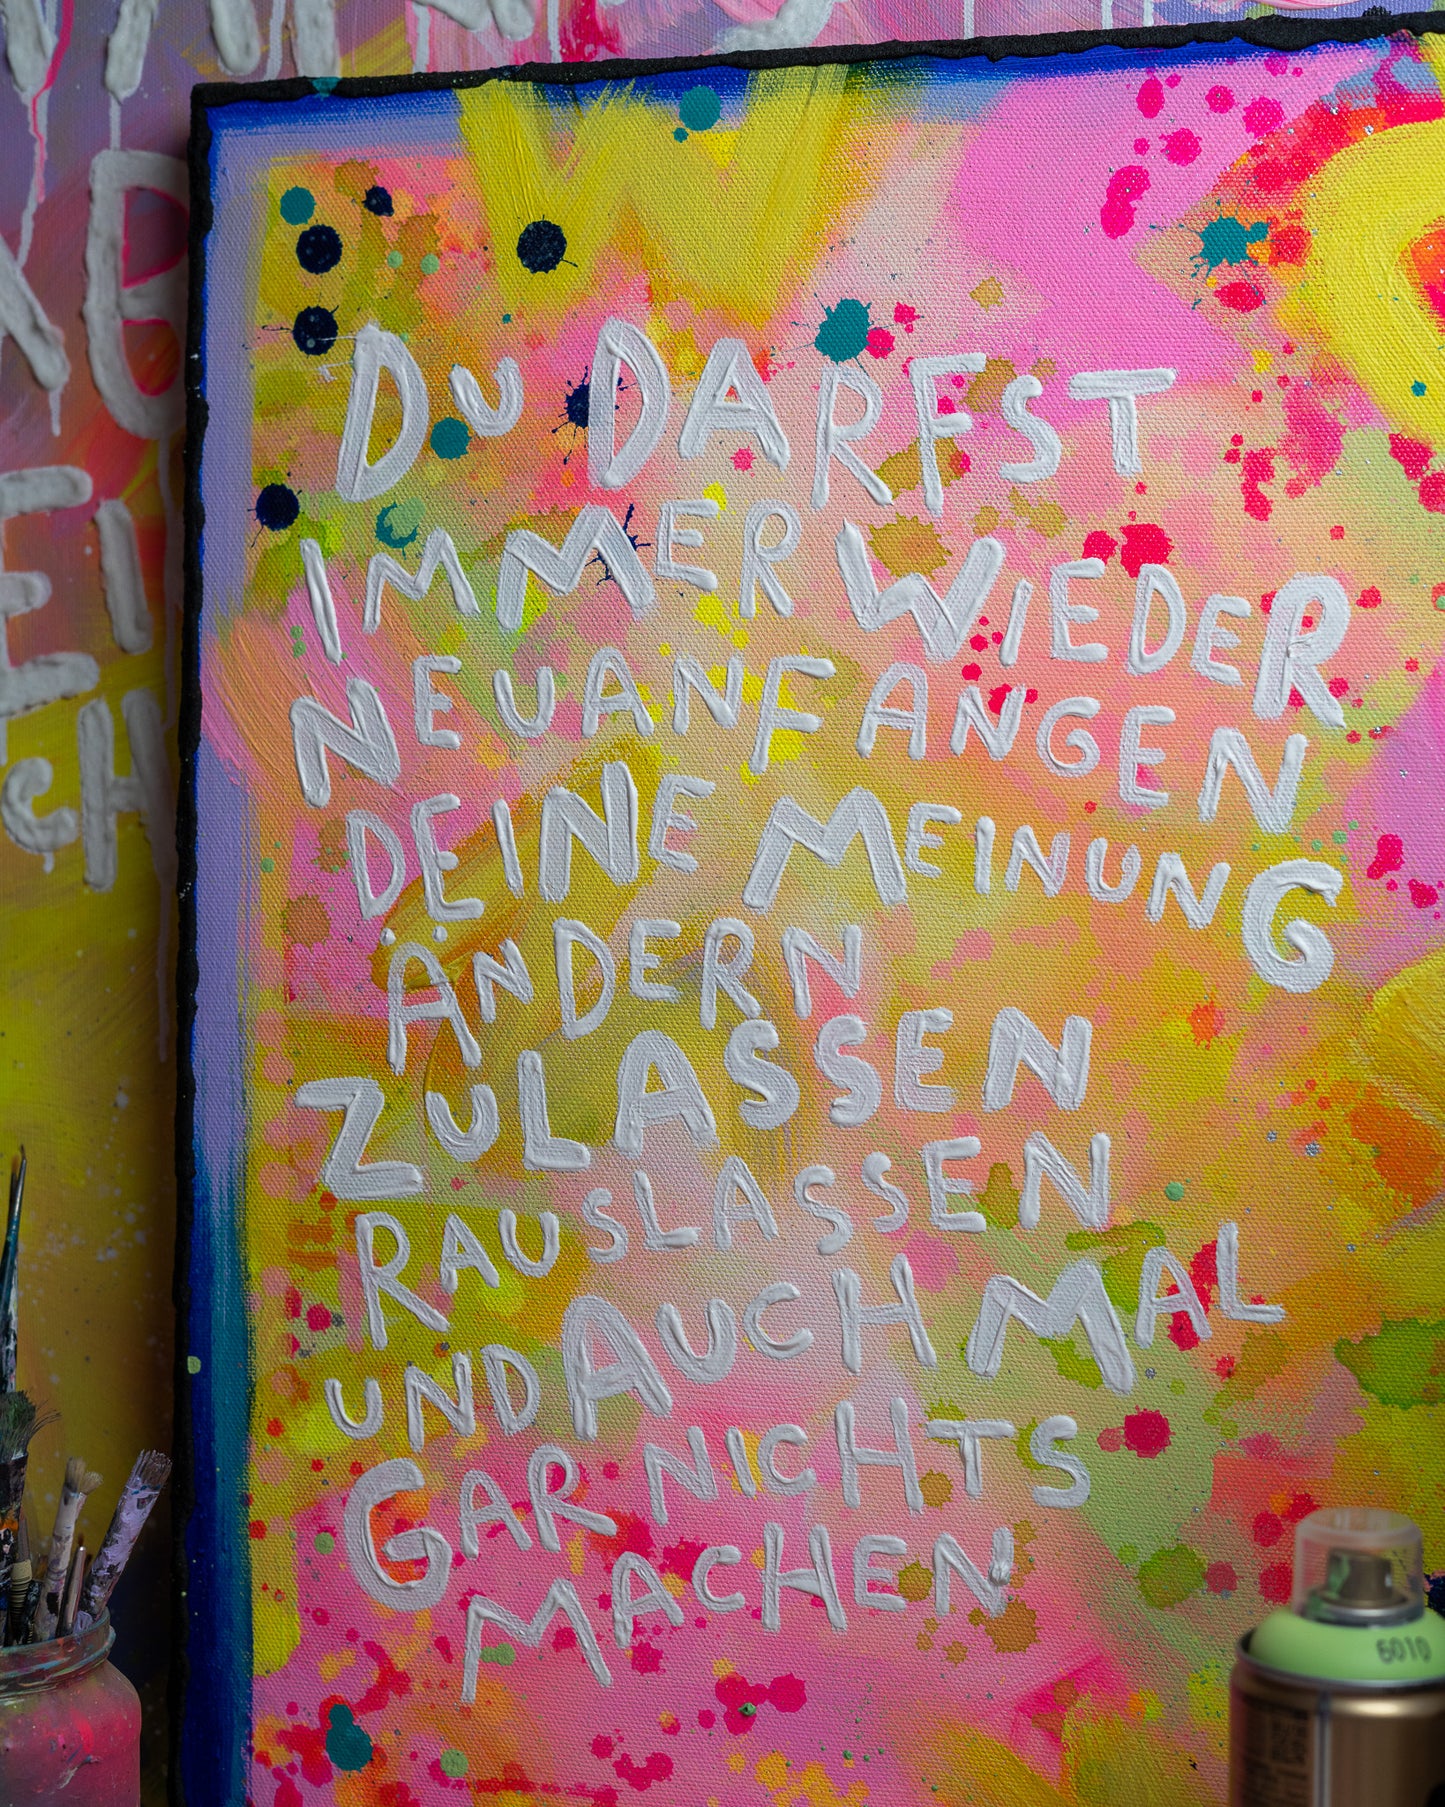 DU DARFST
IMMER WIEDER
NEUANFANGEN
DEINE MEINUNG
ÄNDERN
ZULASSEN
RAUSLASSEN
UND AUCH MAL
GAR NICHTS
MACHEN
6010